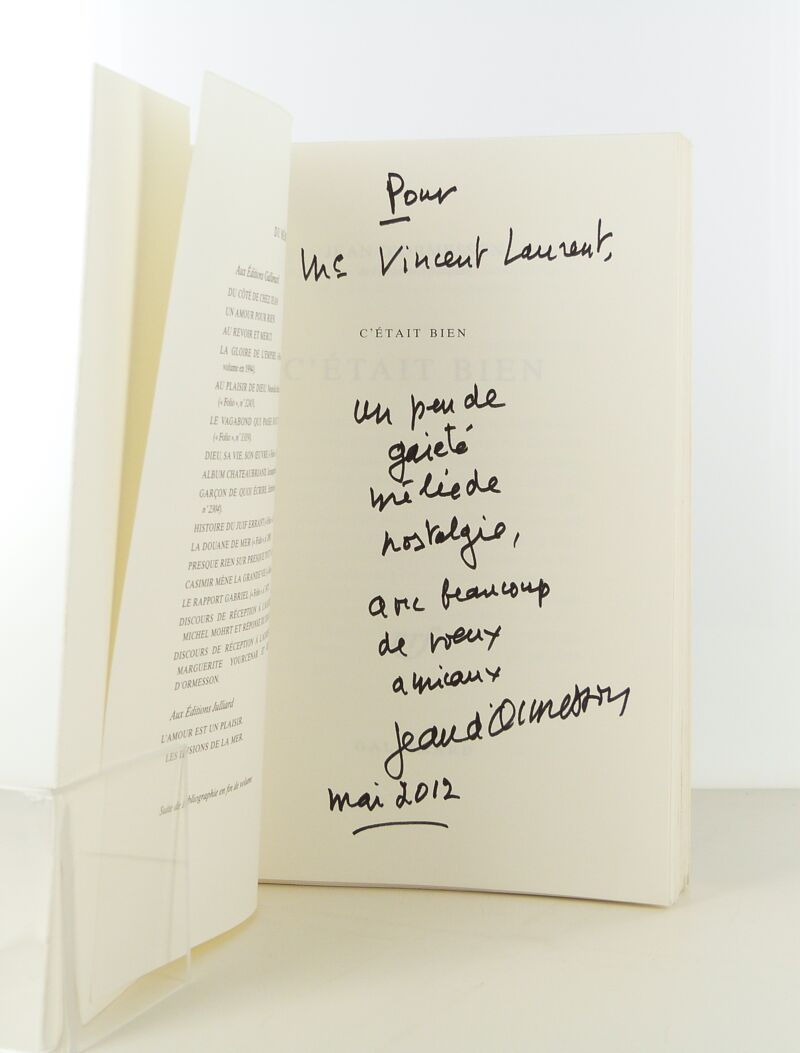 Aux Éditions Gallimard
DU CÔTÉ DE CHEZ JEAN
UN AMOUR POUR RIEN
AU REVOIR ET MERCI
LA GLOIRE DE L'EMPIRE
volume en 1994).
AU PLAISIR DE DIEU,
(« Folio », n° 1243).
LE VAGABOND QUI PASSE
(« Folio », n° 1319).
DIEU, SA VIE, SON ŒUVRE
ALBUM CHATEAUBRIAND
GARÇON DE QUOI ÉCRIRE,
n° 2304).
HISTOIRE DU JUIF ERRANT
LA DOUANE DE MER
PRESQUE RIEN SUR PRESQUE
CASIMIR MÈNE LA GRANDE
LE RAPPORT GABRIEL
DISCOURS DE RÉCEPTION À
MICHEL MOHRT ET RÉPONSE
DISCOURS DE RÉCEPTION À
MARGUERITE YOURCENAR ET
D'ORMESSON.
Aux Éditions Julliard
L'AMOUR EST UN PLAISIR
LES ILLUSIONS DE LA MER
Suite de bibliographie en fin de volume
Pour
Vincent Laurent,
C'ÉTAIT BIEN
C'ÉTAIT BIEN
un peu de
gaieté
mêlée de
nostalgie,
avec beaucoup
de voeux
amicaux
Jean d'Ormesson
mai 2012